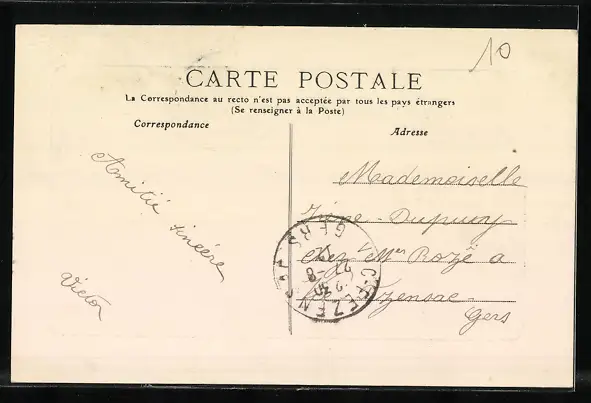 10
CARTE POSTALE
La Correspondance au recto n'est pas acceptée par tous les pays étrangers
(Se renseigner à la Poste)
Correspondance
Adresse
Amitié
sincère
Victor
Mademoiselle
Irène Dupuuy
chez Mme Rozé a
Vic-Fezensac
Gers
VIC-FEZENSAC
GERS